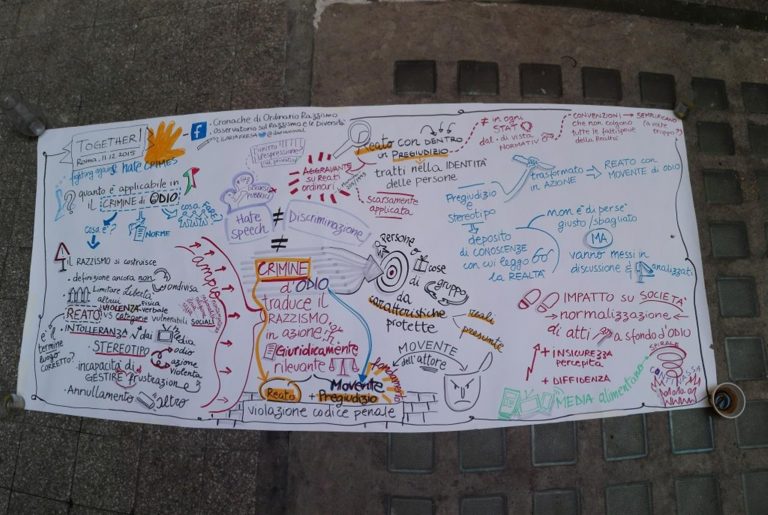 TOGETHER!
Roma, 11.12.2015
fighting against hate CRIMES
quanto è applicabile in
il CRIMINE di ODIO?
cosa è?
NORME
cosa FARE
f
. Cronache di Ordinario Razzismo
. Osservatorio sul Razzismo e le Diversità
IL RAZZISMO si costruisce
. definizione ancora non condivisa
. Limitare Libertà altrui
VIOLENZA fisica verbale
REATO vs categorie vulnerabili SOCIALI
INTOLLERANZA dai media
STEREOTIPO odio
azione violenta
. incapacità di GESTIRE frustrazione
. Annullamento altro
è termine luogo CORRETTO?
Hate speech
≠
Discriminazione
≠
CRIMINE
d'ODIO
traduce il
RAZZISMO
in azione
Giuridicamente
rilevante
Reato + Movente
Pregiudizio
violazione codice penale
AGGRAVANTE
su Reati
ordinari
Reato con DENTRO
un PREGIUDIZIO
tratti nella IDENTITÀ
delle persone
scarsamente
applicata
≠ in ogni
STATO
dal p. di vista
NORMATIVO
CONVENZIONI
che non colgono
tutte le fattispecie
della Realtà
SEMPLIFICANO
(a volte
troppo?)
Persone
o cose
o gruppo
da
caratteristiche
protette
reali
presunte
MOVENTE
dell'attore
Pregiudizio
e
Stereotipo
deposito
di CONOSCENZE
con cui leggo
la REALTÀ
trasformato
in AZIONE
REATO con
MOVENTE di ODIO
non è di per sé
giusto / sbagliato
MA
vanno messi in
discussione & analizzati
IMPATTO su SOCIETÀ
normalizzazione
di atti a sfondo d'ODIO
+ INSICUREZZA
percepita
+ DIFFIDENZA
SPIRALE
MEDIA alimentano